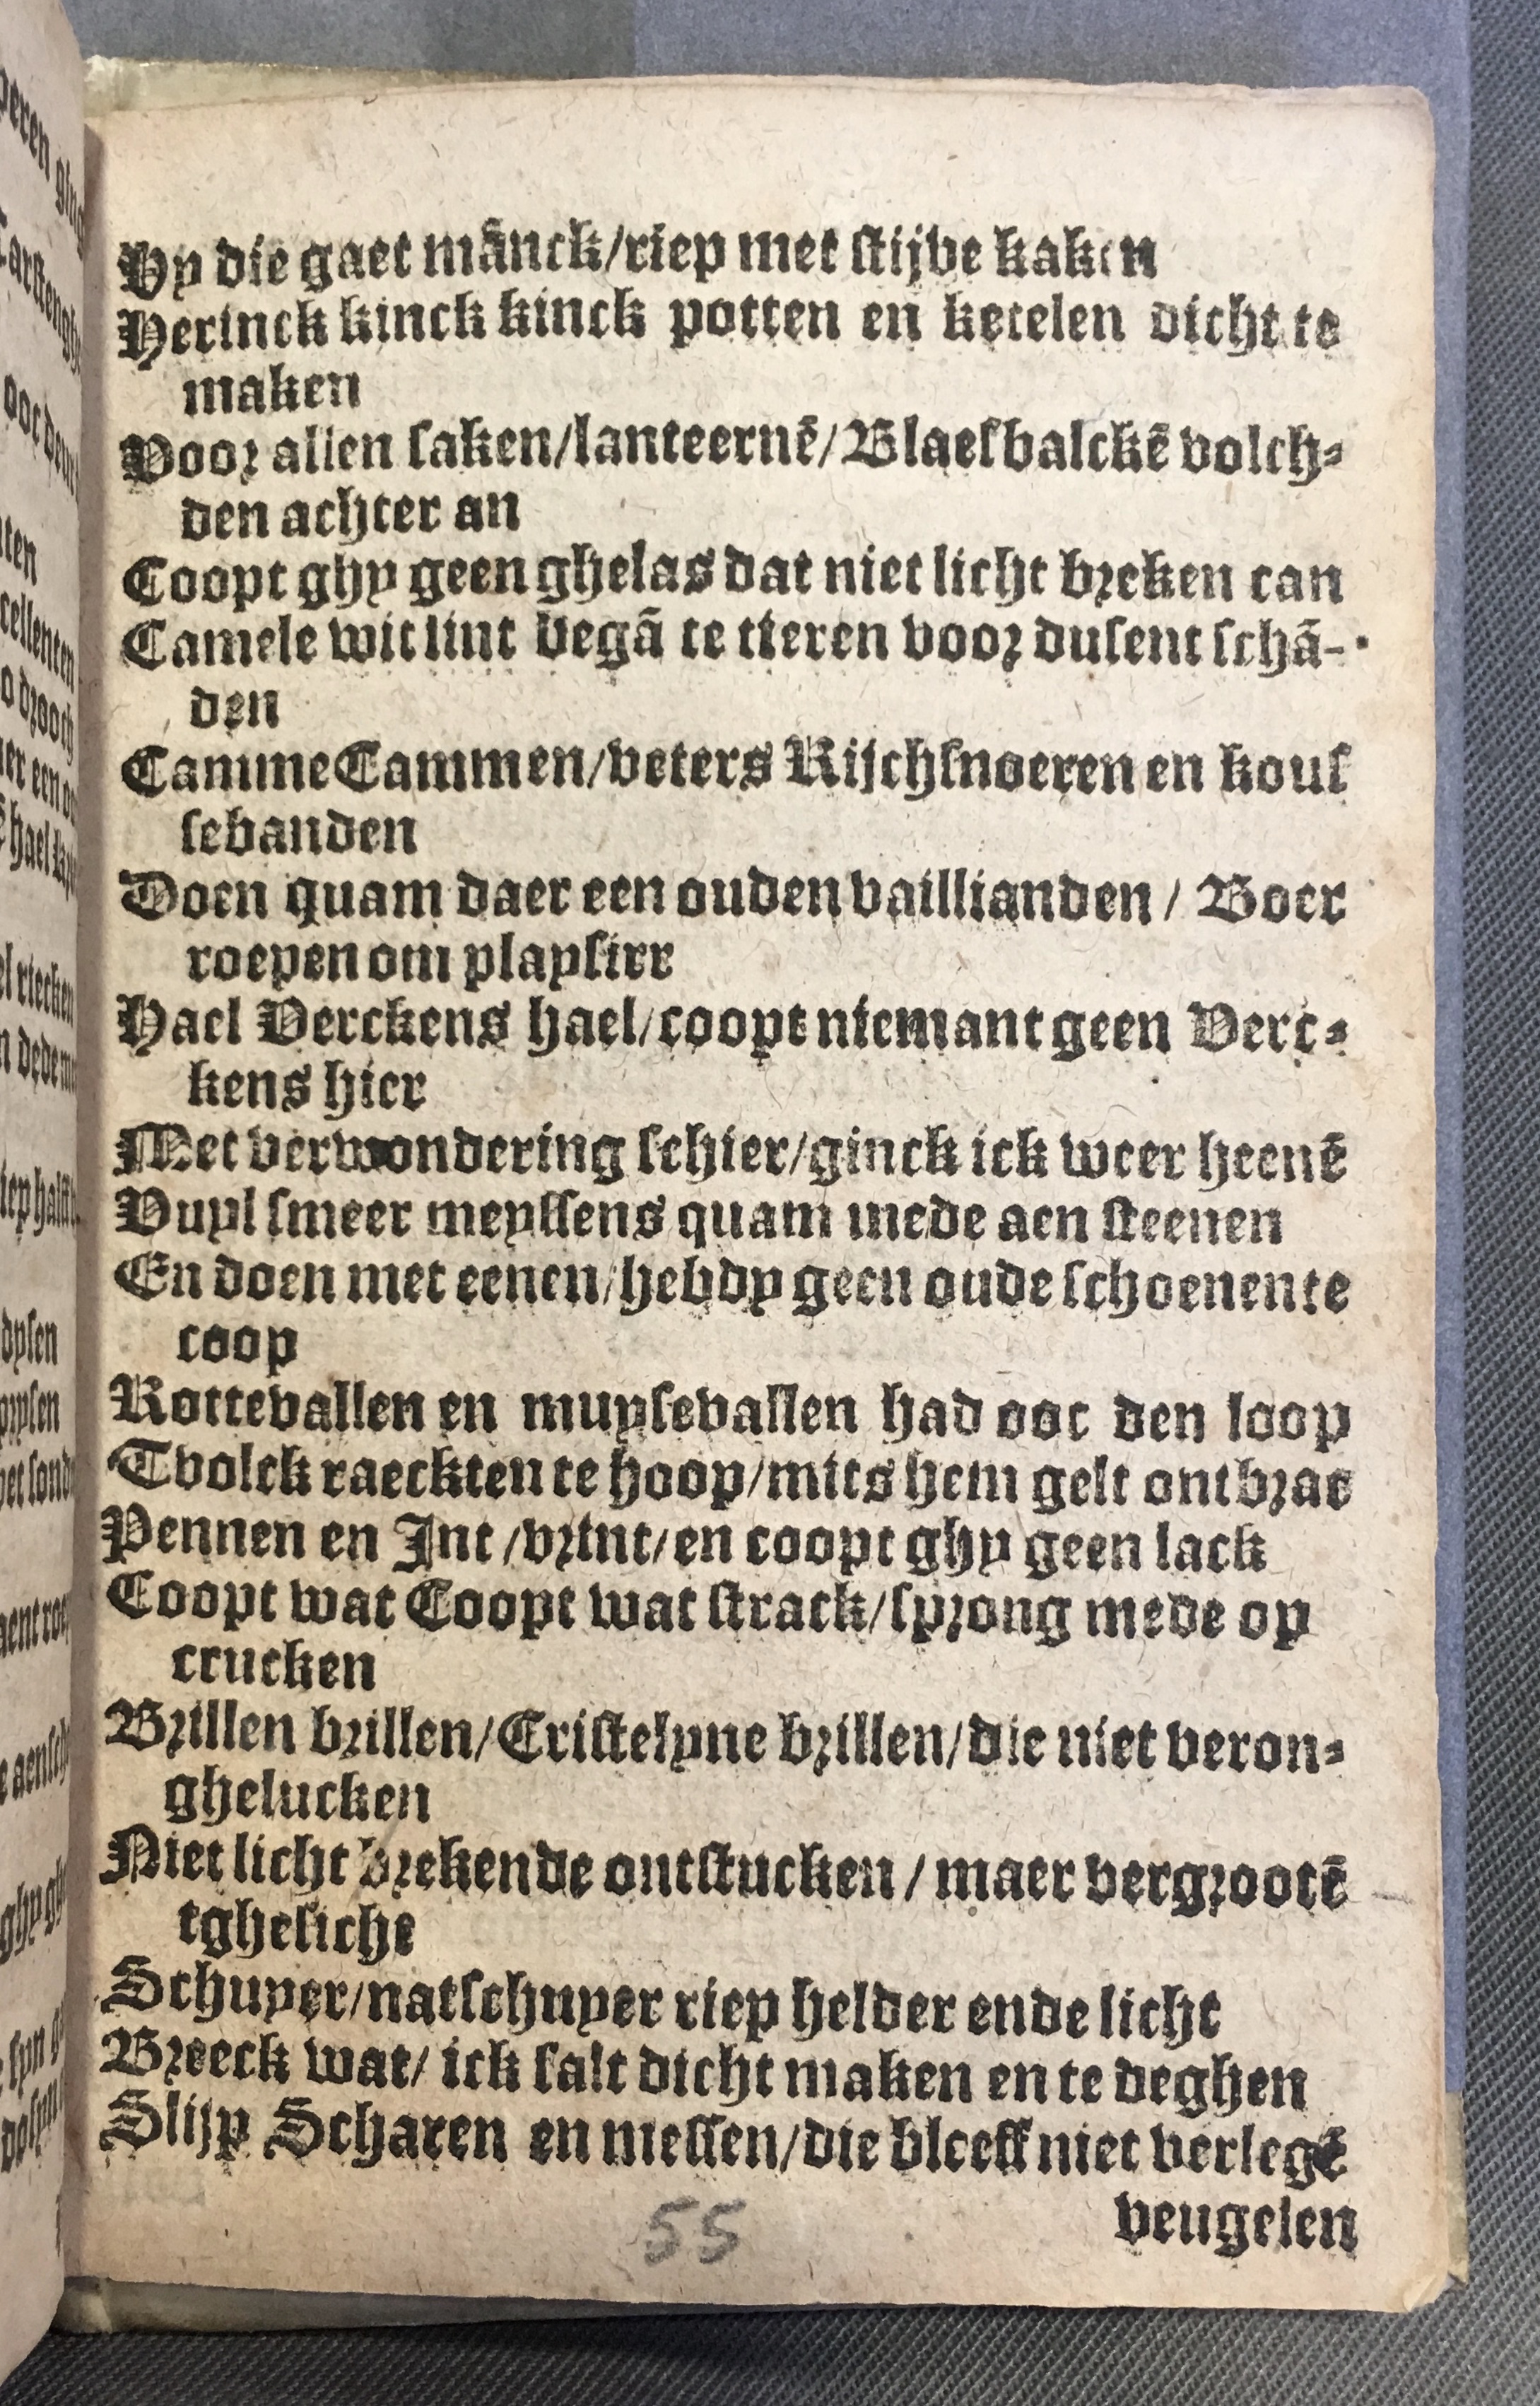 Hy die gaet mãnck/riep met stijve kaken
Herinck kinck kinck potten en ketelen dicht te
maken
Voor allen saken/lanteernē/Blaesbalckē volch-
den achter an
Coopt ghy geen ghelas dat niet licht breken can
Camele wit lint vegã te tieren voor dusent schã-
den
Camme Cammen/veters Rijchsnoeren en kous
sebanden
Doen quam daer een ouden vaillianden / Boer
roepen om playsirr
Hael Verckens hael/coopt niemant geen Verc-
kens hier
Met verwondering schier/ginck ick weer heenē
Vuyl smeer meyssens quam mede aen steenen
En doen met eenen/hebdy geen oude schoenen te
coop
Rottevallen en muysevallen had ooc den loop
Tvolck raeckten te hoop/mits hem gelt ontbrac
Pennen en Int/vrint/en coopt ghy geen lack
Coopt wat Coopt wat strack/sprong mede op
crucken
Brillen brillen/Cristelyne brillen/die niet veron-
ghelucken
Niet licht brekende ontstucken / maer vergrootē
tghesiche
Schuyer/natschuyer riep helder ende licht
Breeck wat/ ick salt dicht maken en te deghen
Slijp Scharen en messen/die bleeff niet verlegē
veugelen
55